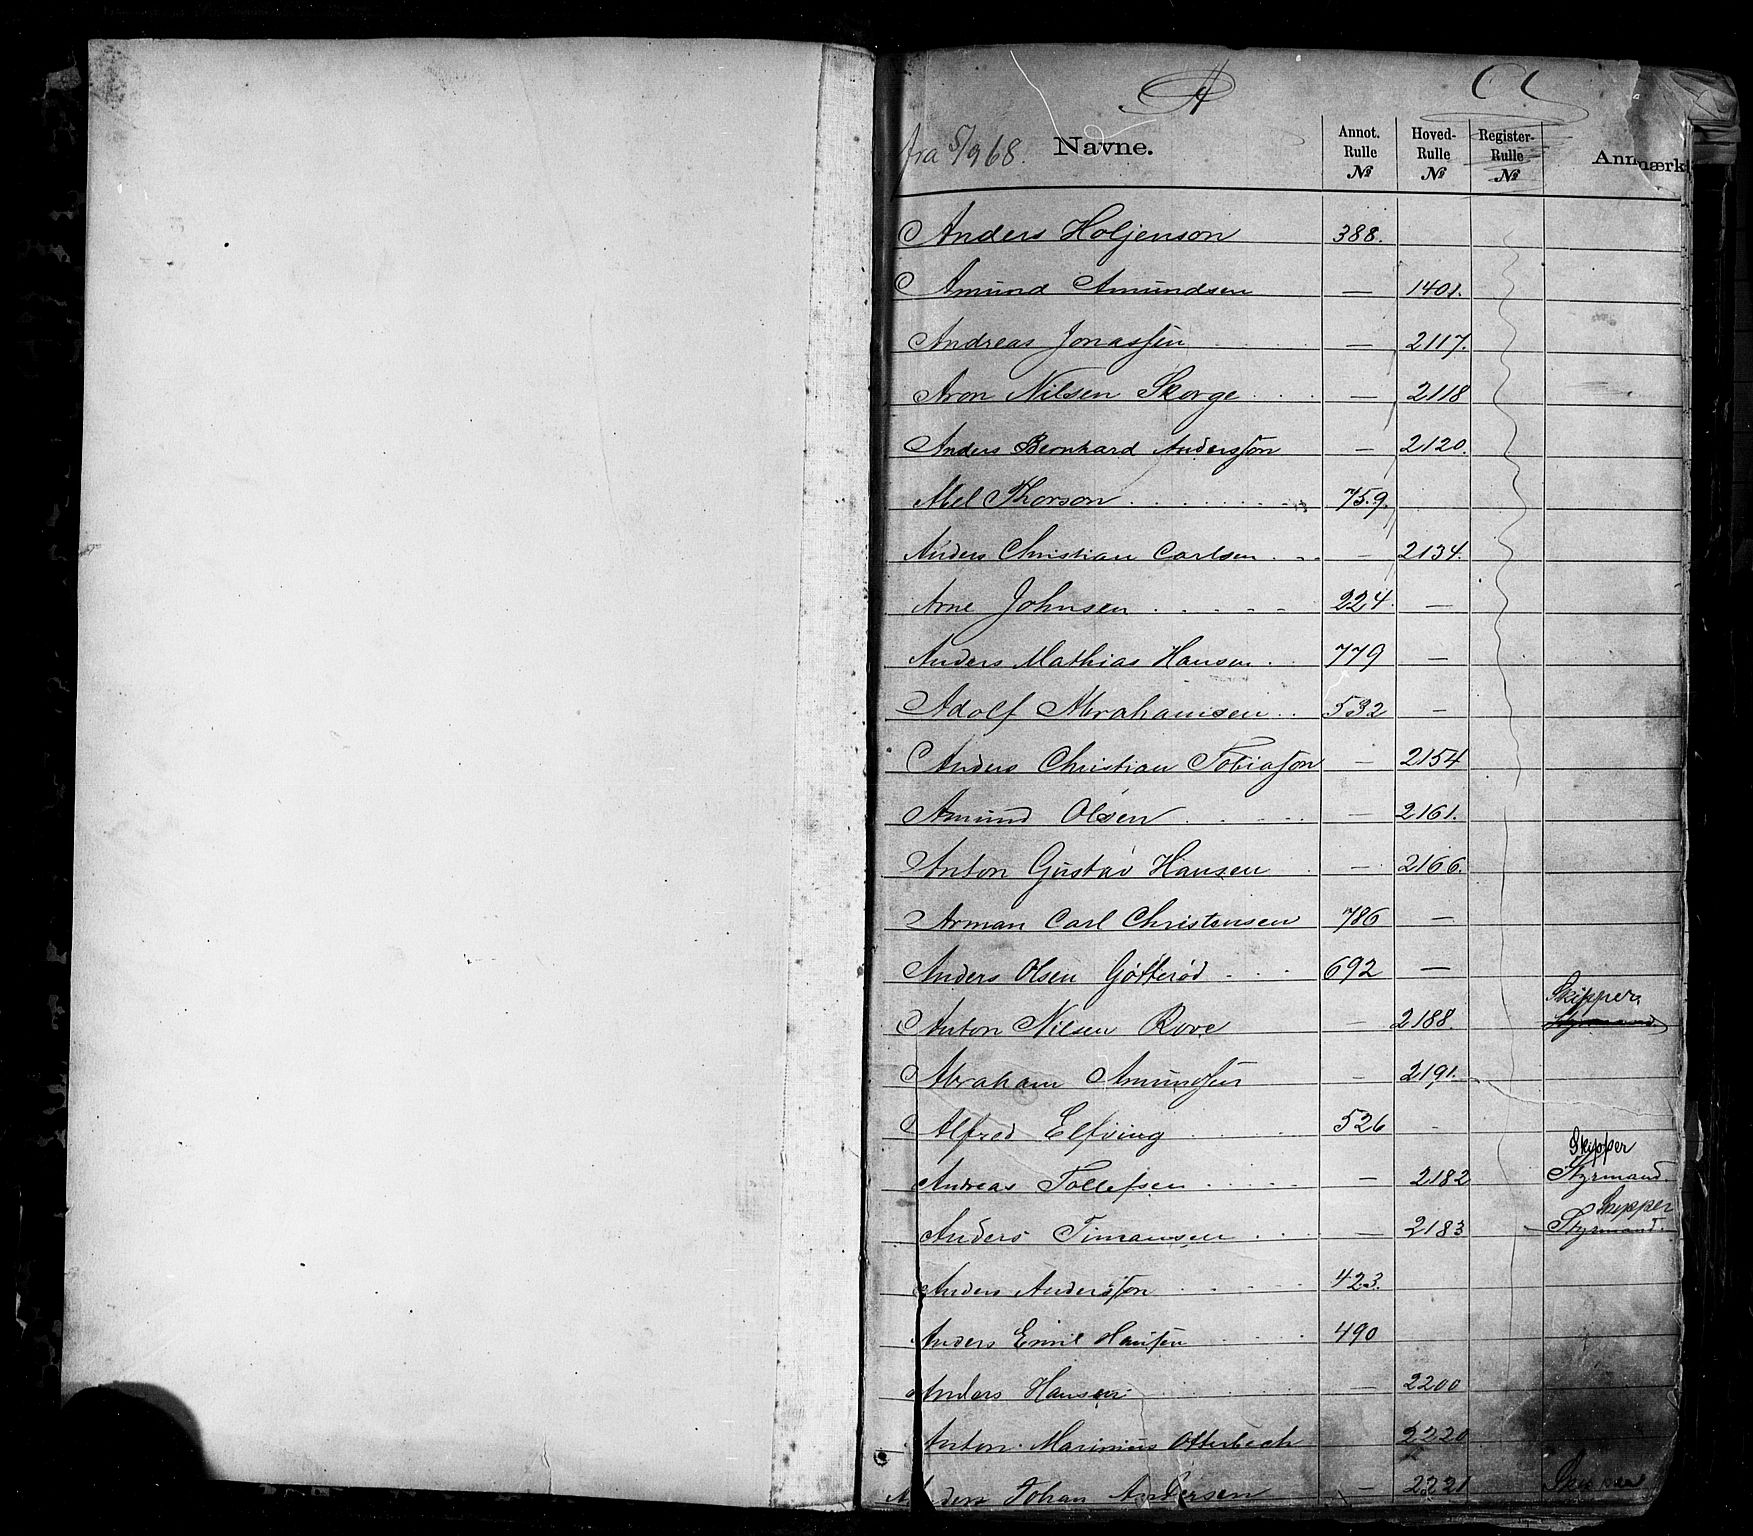 A
fra 5/9 68. Navne. Annot. Rulle № Hoved- Rulle № Register- Rulle № Anmærk
Anders Holjenson 388.
Amund Amundsen — 1401.
Andreas Jonassen — 2117.
Aron Nilsen Skorge — 2118
Anders Bernhard Andersson — 2120.
Abel Thorson 759.
Anders Christian Carlsen — 2134.
Arne Johnsen 224. —
Anders Mathias Hansen 779 —
Adolf Abrahamsen 532 —
Anders Christian Tobiason — 2154
Amund Olsen — 2161.
Anton Gustav Hansen — 2166.
Arman Carl Christensen 786 —
Anders Olsen Götterød 692 —
Anton Nilsen Rove — 2188 Skipper Styrmand
Abraham Amundsen — 2191.
Alfred Elfving 526 -
Andreas Tollefsen — 2182 Skipper Styrmand.
Anders Timansen — 2183 Skipper Styrmand.
Anders Andersson 423.
Anders Emil Hansen 490
Anders Hansen — 2200
Anton Marinius Otterbech 2220
Anders Johan Andersen — 2221 Skipper